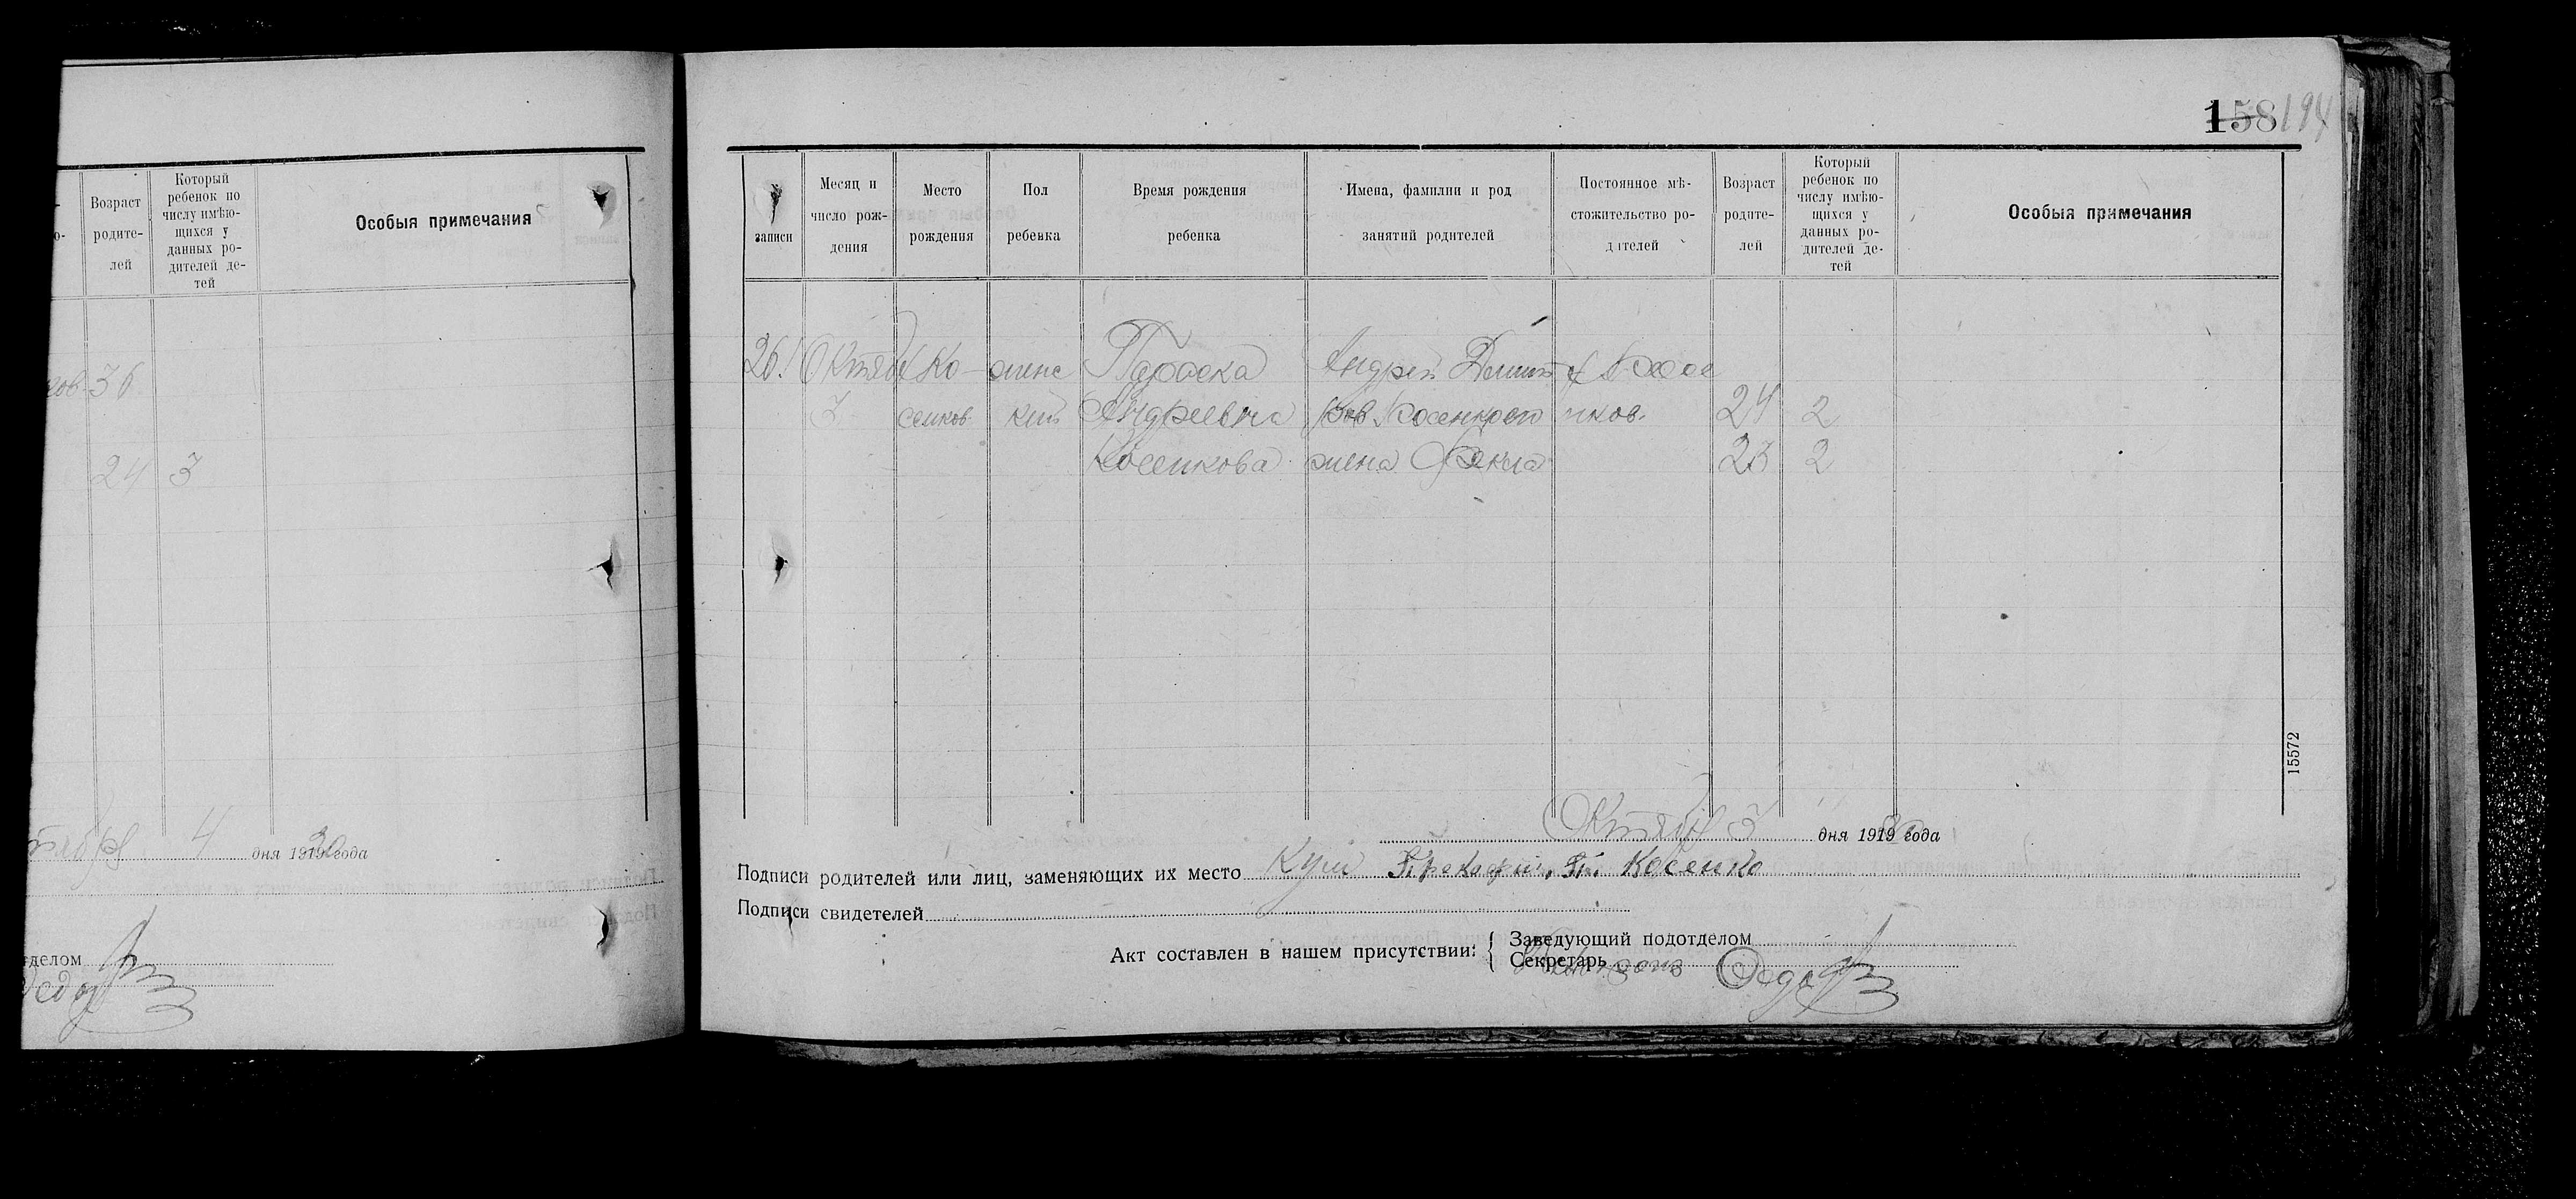 Возраст родителей
Который ребенок по числу имѣющихся у данных родителей детей
Особыя примечания
ков 36
24 3
4 дня 1919 года
158 194
записи
Месяц и число рождения
Место рождения
Пол ребенка
Время рождения ребенка
Имена, фамилии и род занятий родителей
Постоянное мѣстожительство родителей
Возраст родителей
Который ребенок по числу имѣющихся у данных родителей детей
Особыя примечания
261 Октяб Ко- женс Параска Андрей Дмит
3 сенков кий Андреевна 24 2
Косенкова жена Фекла 23 2
15572
Октяб 5 дня 1919 года
Подписи родителей или лиц, заменяющих их место Кум Косенко
Подписи свидетелей
Акт составлен в нашем присутствии: { Заведующий подотделом
Секретарь